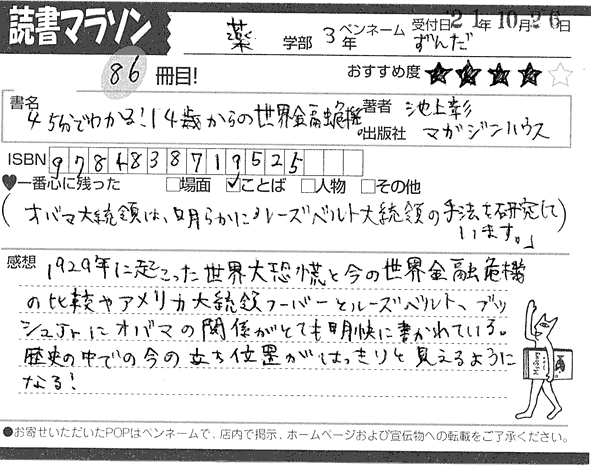 読書マラソン
薬 学部 3年 ペンネーム ずんだ 受付日 '21年10月26日
86 冊目!
おすすめ度 ★★★★☆
書名 45分でわかる!14歳からの世界金融危機。
著者 池上彰
出版社 マガジンハウス
ISBN 9784838719525
♥一番心に残った □場面 ☑ことば □人物 □その他
(オバマ大統領は、明らかにルーズベルト大統領の手法を研究して
います。」)
感想 1929年に起こった世界大恐慌と今の世界金融危機
の比較やアメリカ大統領フーバーとルーズベルト、ブッ
シュJr.にオバマの関係がとても明快に書かれている。
歴史の中での今の立ち位置がはっきりと見えるように
なる!
●お寄せいただいたPOPはペンネームで、店内で掲示、ホームページおよび宣伝物への転載をご了承ください。